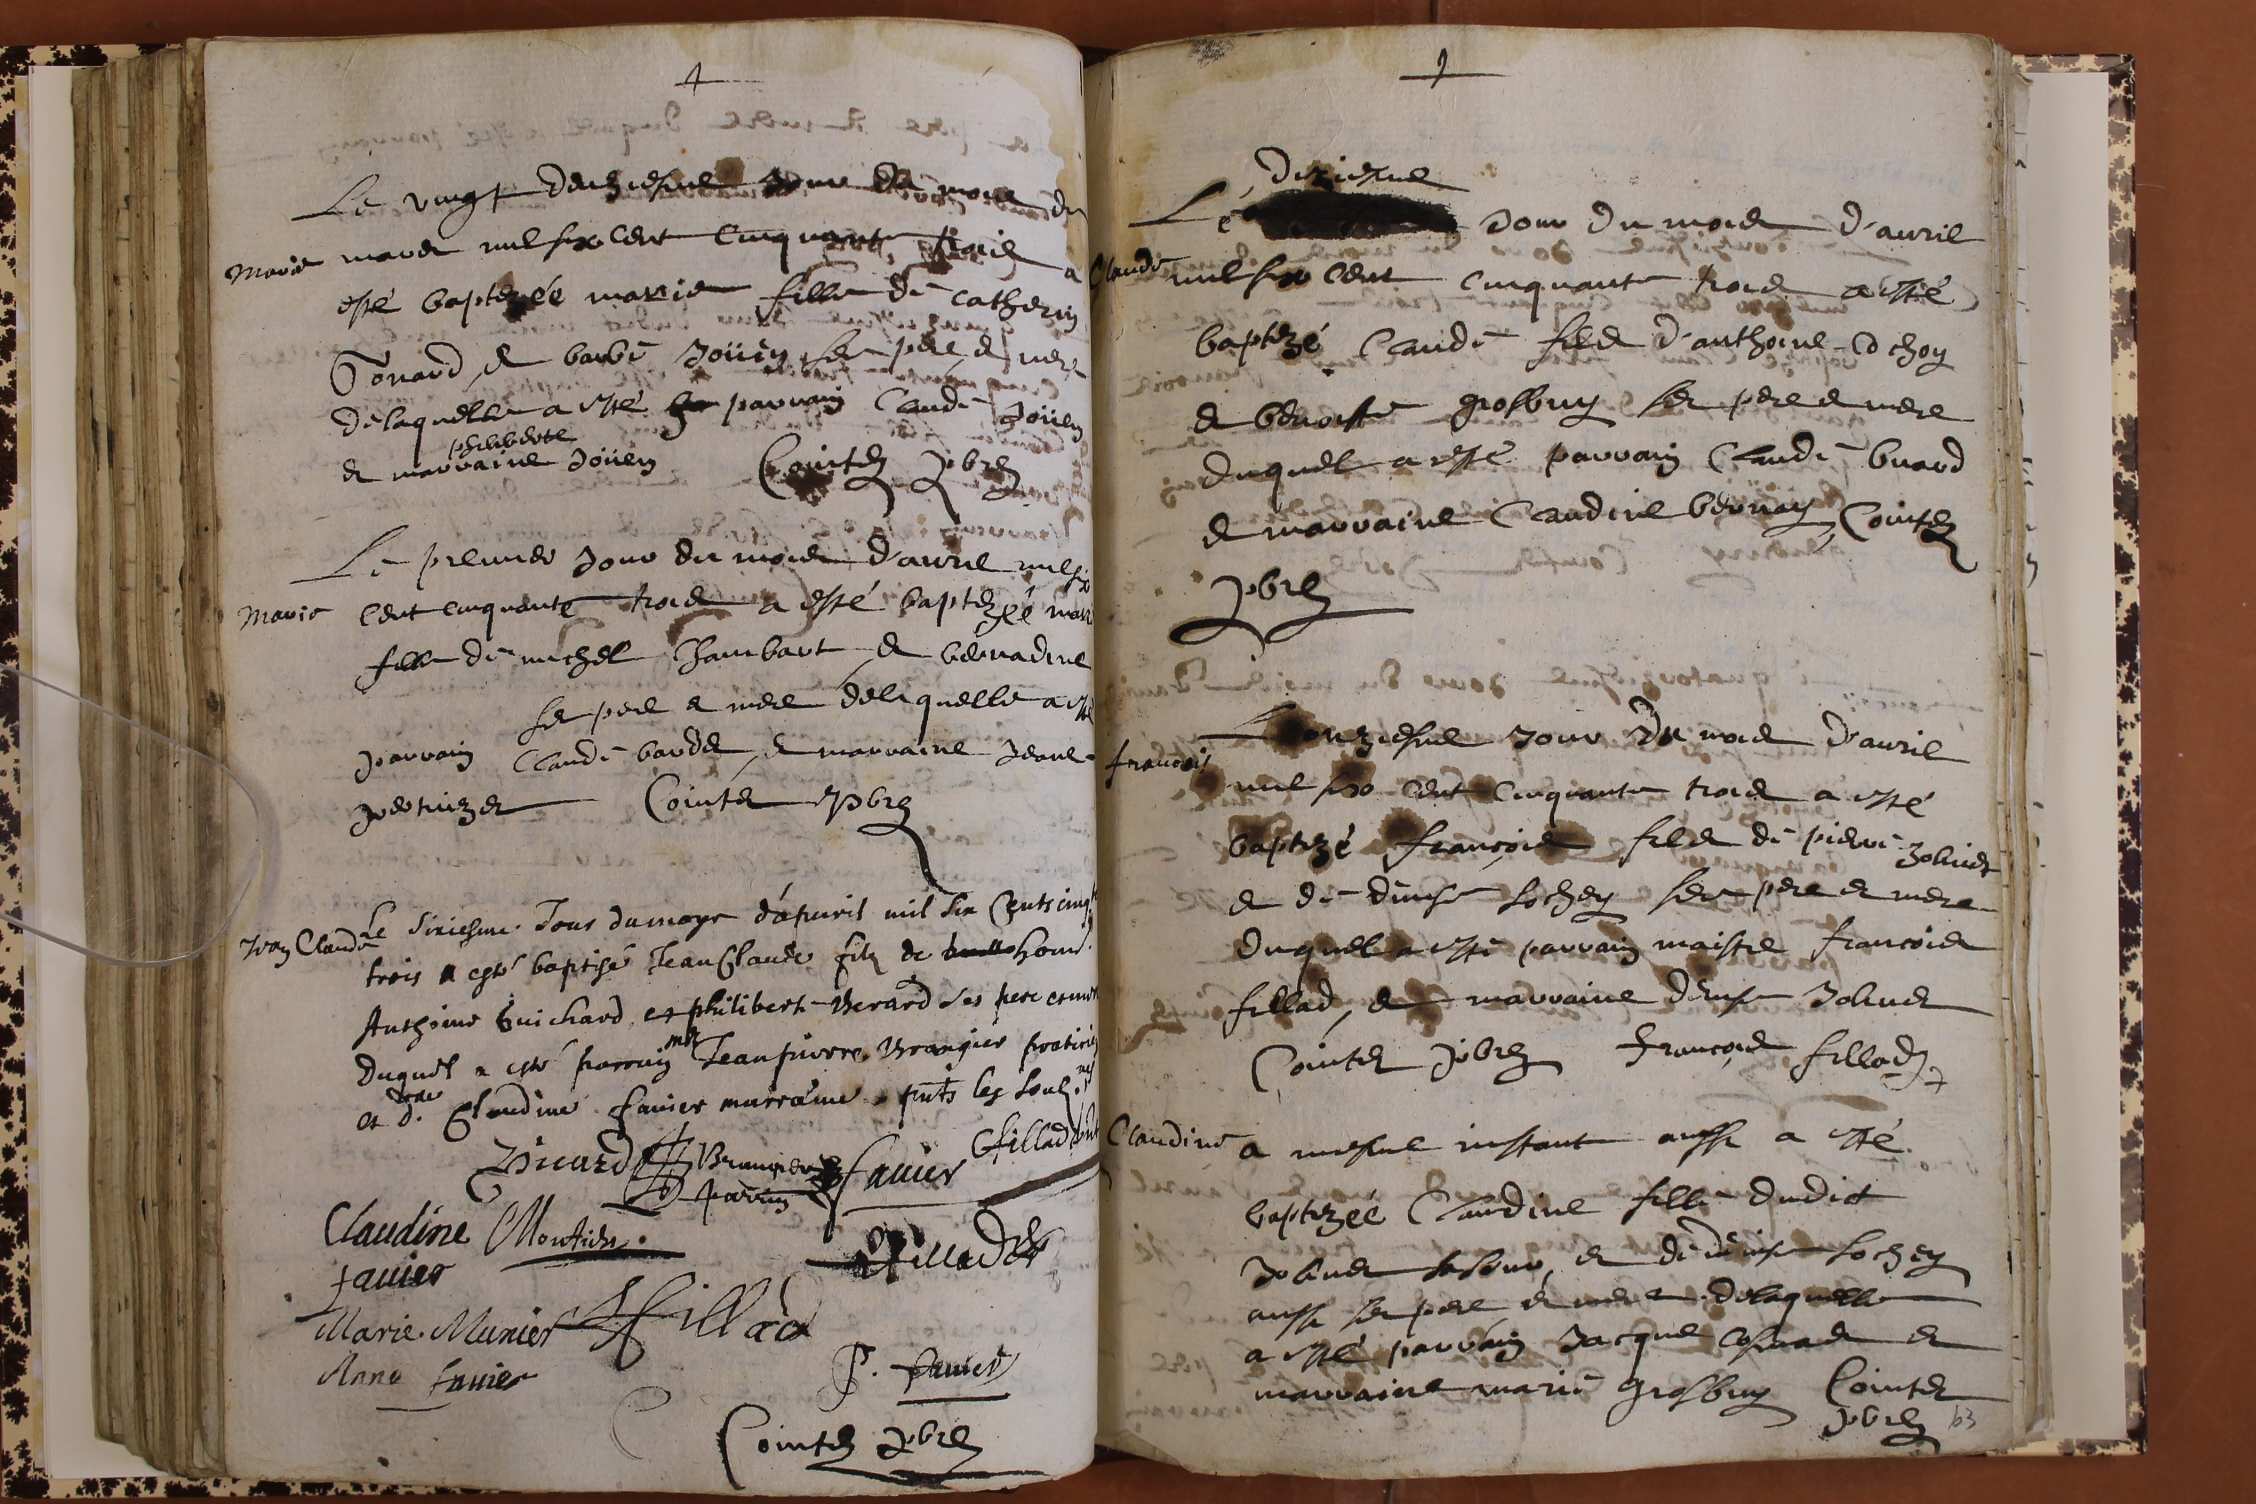 Le vingt deuziesme jour du mois de
Marie
mars mil six cent cinquante trois a
esté baptezée marie fille de catherin
Tonard, et barbe Joüen ses pere et mere
delaquelle a esté parrain Claude Joüen
philiberte
et marraine Joüen Cointet pbre
Le premier jour du mois d'avril mil six
Marie
cent cinquante trois a esté baptezéé mari
fille de michel Chambart et bernadine
ses pere et mere delaquelle a esté
parrain Claude bardet, et marraine Jeane
pertuizet Cointet pbre
Jean Claude
Le sixiesme Jour du moys d'apvril mil six Cents cinqte
trois a esté baptisé Jean Claude filz de hono.
Anthoine Guichard et philiberte Berard ses pere et mere
Duquel a esté parrain mre Jean pierre Brangier praticien
et d. Claudine favier marraine pnts les soubz.nés
Brangier
parrin
favier
fillad
Claudine Monthier
favier
filladet
Marie Munier
fillad
Anne favier
P. favier
Cointet pbre
diziesme
Le jour du mois d'avril
Claude
mil six cent cinquante trois a esté
baptezé Claude filz d'anthoine Cochoy
et benoiste grosbuy ses pere et mere
duquel a esté parrain Claude buard
et marraine Claudine bernay Cointet
pbre
L'onziesme jour du mois d'avril
francois
mil six cent cinquante trois a esté
baptezé françois filz de pierre Jolivet
et de denise Lochey ses pere et mere
duquel a esté parrain maistre francois
fillad, et marraine denise Jolivet
Cointet pbre françois fillad
Claudine
a mesme instant aussi a esté
baptezéé Claudine fille dudict
Jolivet et de denise Lochey
aussi ses pere et mere delaquelle
a esté parrain Jacque et
marraine marie grosbuy Cointet
pbre
63